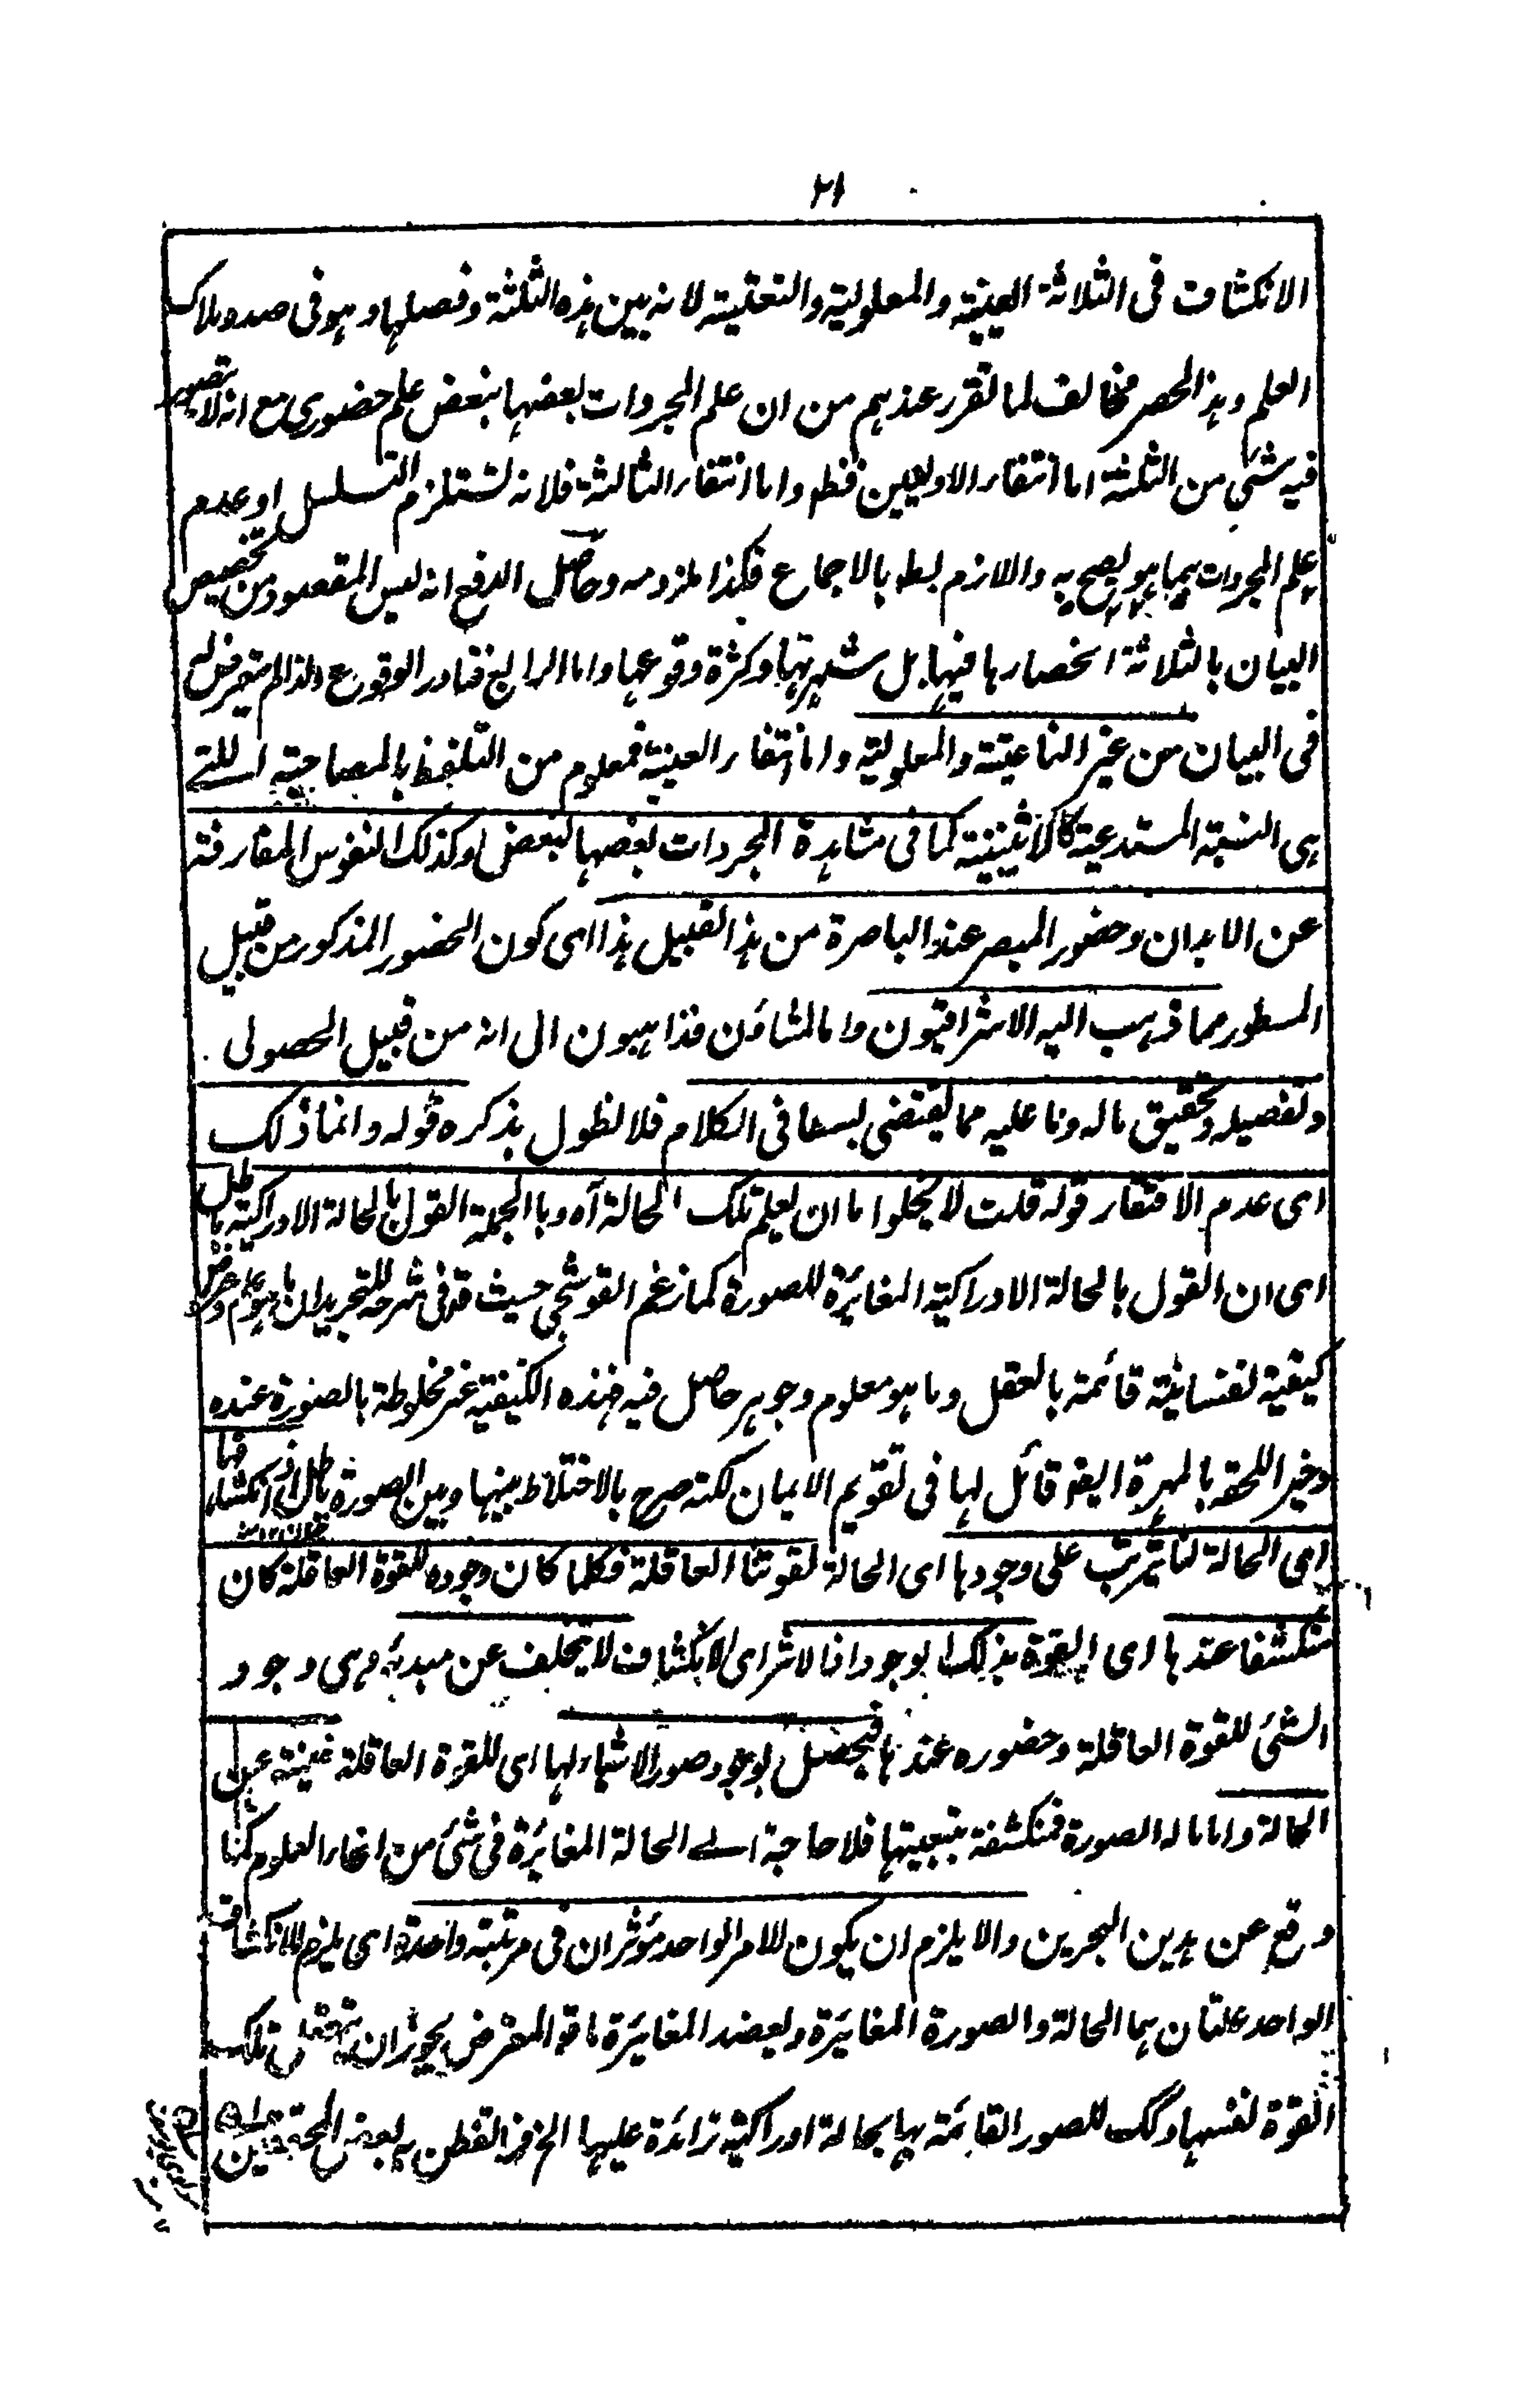 ٢١
الانكشاف فى الثلاثة العينية والمعلولية والنعتية لانه بين هذه الثلثة وفصلها وهو فى صدد ملاك
العلم وهذا الحصر مخالف لما تقرر عندهم من ان علم المجردات بعضها ببعض علم حضورى مع انه لا يتصور
فيه شئ من الثلثة اما انتفاء الاوليين فظ واما انتفاء الثالثة فلانه تستلزم التسلسل او عدم
علم المجردات بها واللازم بط بالاجماع فكذا ملزومه وحاصل الدفع انه ليس المقصود من تخصيص
البيان بالثلاثة انحصارها فيها بل شهرتها وكثرة وقوعها واما الرابع فنادر الوقوع ولذا لم يتعرض له
فى البيان من غير الناعتية والمعلولية واما انتفاء العينية فمعلوم من التلفظ بالمصاحبة اللتے
هى النسبة المستدعية كالاثنينية كما فى مشاهدة المجردات بعضها لبعض وكذلك النفوس المفارقة
عن الابدان وحضور المبصر عند الباصرة من هذا القبيل هذا اى كون الحضور المذكور من قبيل
المسطور مما ذهب اليه الاشراقيون واما المشاؤن فذاهبون الى انه من قبيل الحصولى
وتفصيله وتحقيق ماله وما عليه مما يقتضى بسطا فى الكلام فلا نطول بذكره قوله وانما ذلك
اى عدم الافتقار قوله قلت لا يخلوا ما ان يعلم تلك الحالة آه وبا الجملة القول بالحالة الادراكية باطل
اى ان القول بالحالة الادراكية المغائرة للصورة كما زعم القوشجى حيث قد فى شرحه للتجريد ان ما هو علم وعرض
كيفية نفسانية قائمة بالعقل وما هو معلوم وجوهر حاصل فيه فهذه الكيفية غير مخلوطة بالصورة عنده
وخير اللحقة بالمهرة ايضا قائل لها فى تقويم الايمان لكنه صرح بالاختلاط بينها وبين الصورة باطل اذ انكشافها
اى الحالة لنا يترتب على وجودها اى الحالة لقوتنا العاقلة فكلما كان وجوده للقوة العاقلة كان
منكشفا عندها اى القوة بذلك الوجود اذا لاثر اى الانكشاف لا يتخلف عن مبدئه وهى وجود
الشئ للقوة العاقلة وحضوره عندها فيحصل بوجود صور الاشياء لها اى للقوة العاقلة غنية عن
الحالة واما ماله الصورة فمنكشفة بتبعيتها فلا حاجة الے الحالة المغائرة فى شئ من انحاء العلوم كنا
ورقع عن يدين البحرين والا يلزم ان يكون للامر الواحد مؤثران فى مرتبة واحدة اى يلزم للانكشاف
الواحد علتان هما الحالة والصورة المغائرة وبعضد المغائرة ما قو المعترض يجوز ان تتعقل تلك
القوة لنفسها وكك للصور القائمة بها بحالة ادراكية زائدة عليها الخ فمن القطن به بعض المحققين